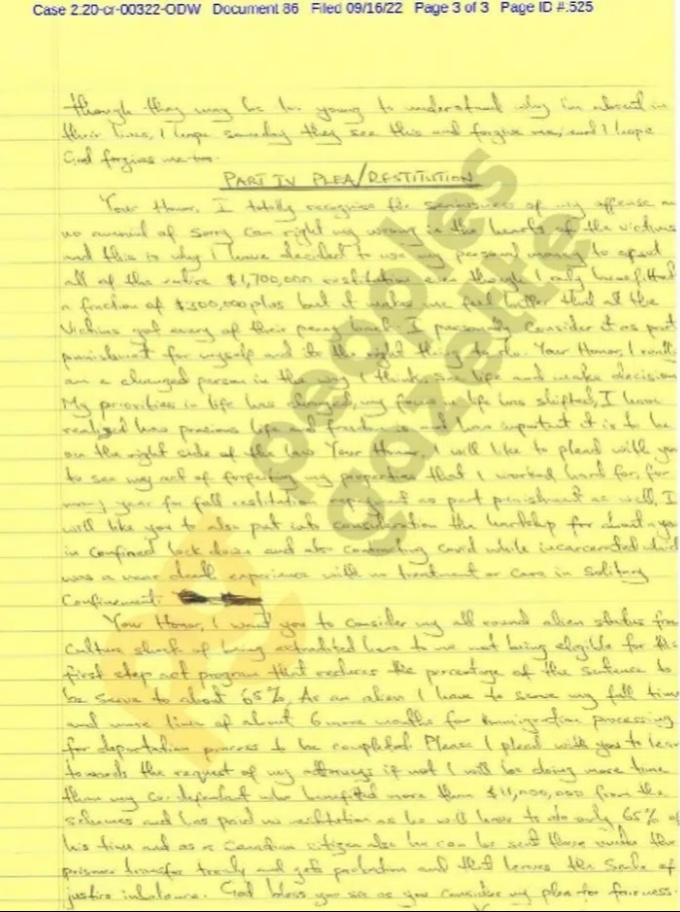 Case 2:20-cr-00322-ODW Document 86 Filed 09/16/22 Page 3 of 3 Page ID #:525
though they may be too young to understand why i'm absent in
their lives, I hope someday they see this and forgive me, and I hope
God forgives me too.
PART IV PLEA/RESTITUTION
Your Honor, I totally recognise the seriousness of my offense
no amount of sorry can right my wrong in the of the victims
and this is why I have decided to use my personal money to
all of the entire $1,700,000 restitution even though I only benefitted
a fraction of $300,000 plus but it makes me feel better that all the
Victims got every of their penny back. I personally consider it as part
punishment for myself and its the right thing to do. Your Honor, I really
am a changed person in the way I think life and make decision
My priorities in life has changed, my focus in life has shifted, I have
realized how precious life and freedom is and how important it is to be
on the right side of the law Your Honor, I will like to plead with you
to see my act of forfeiting my properties that I worked hard for, for
many year for full restitution as part punishment as well, I
will like you to also put into consideration the hardship for about
in confined lock down and also contracting covid while incarcerated which
was a near death experience with no treatment or care in Solitary
Confinement.
Your Honor, I want you to consider my all round alien status from
Culture shock of being extradited here to me not being eligible for the
first step act program that reduces the percentage of the sentence to
be serve to about 65%. As an alien I have to serve my full time
and more time of about 6 more months for immigration processing
for deportation process to be completed. Please I plead with you to lean
towards the request of my attorneys if not I will be doing more time
than my co-defendant who benefitted more than $11,000,000 from the
schemes and has paid no restitution as he will have to do only 65% of
his time and as a Canadian citizen also he can be sent there under the
prisoner transfer treaty and gets probation and that leaves the Scale of
justice inbalance. God bless you sir as you consider my plea for fairness.
peoples
gazette